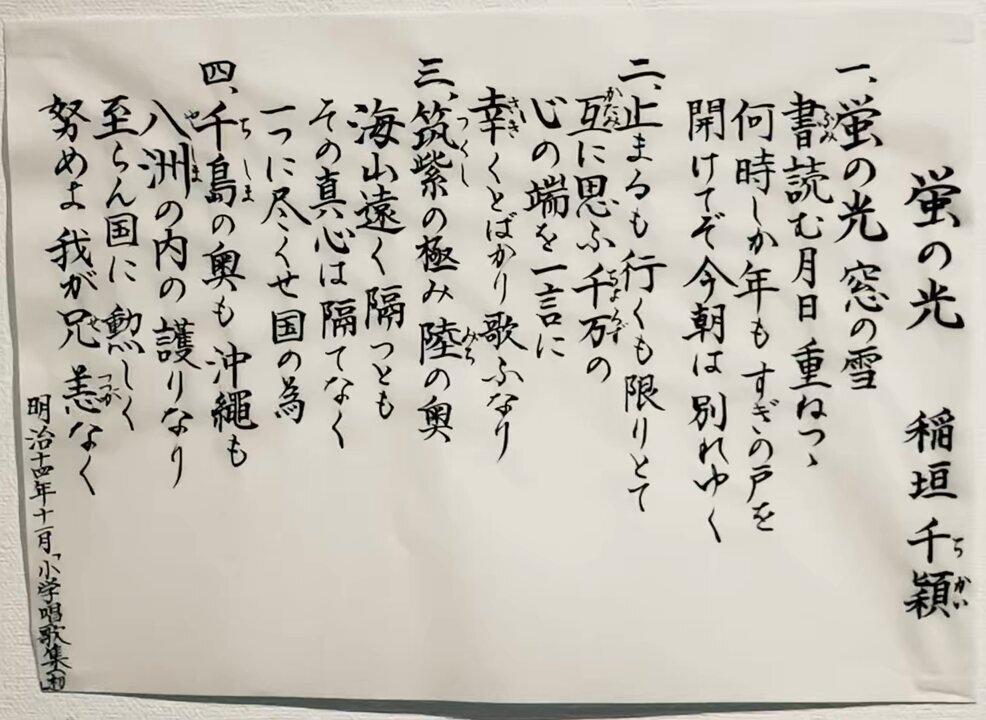 蛍の光　稲垣千穎
一、蛍の光 窓の雪
書読む月日 重ねつゝ
何時しか年も すぎの戸を
開けてぞ今朝は 別れゆく
二、止まるも行くも限りとて
互に思ふ千万の
心の端を一言に
幸くとばかり歌ふなり
三、筑紫の極み 陸の奥
海山遠く 隔つとも
その真心は 隔てなく
一つに尽くせ 国の為
四、千島の奥も 沖縄も
八洲の内の 護りなり
至らん国に 勲しく
努めよ 我が兄 恙なく
明治十四年十一月「小学唱歌集(初)」